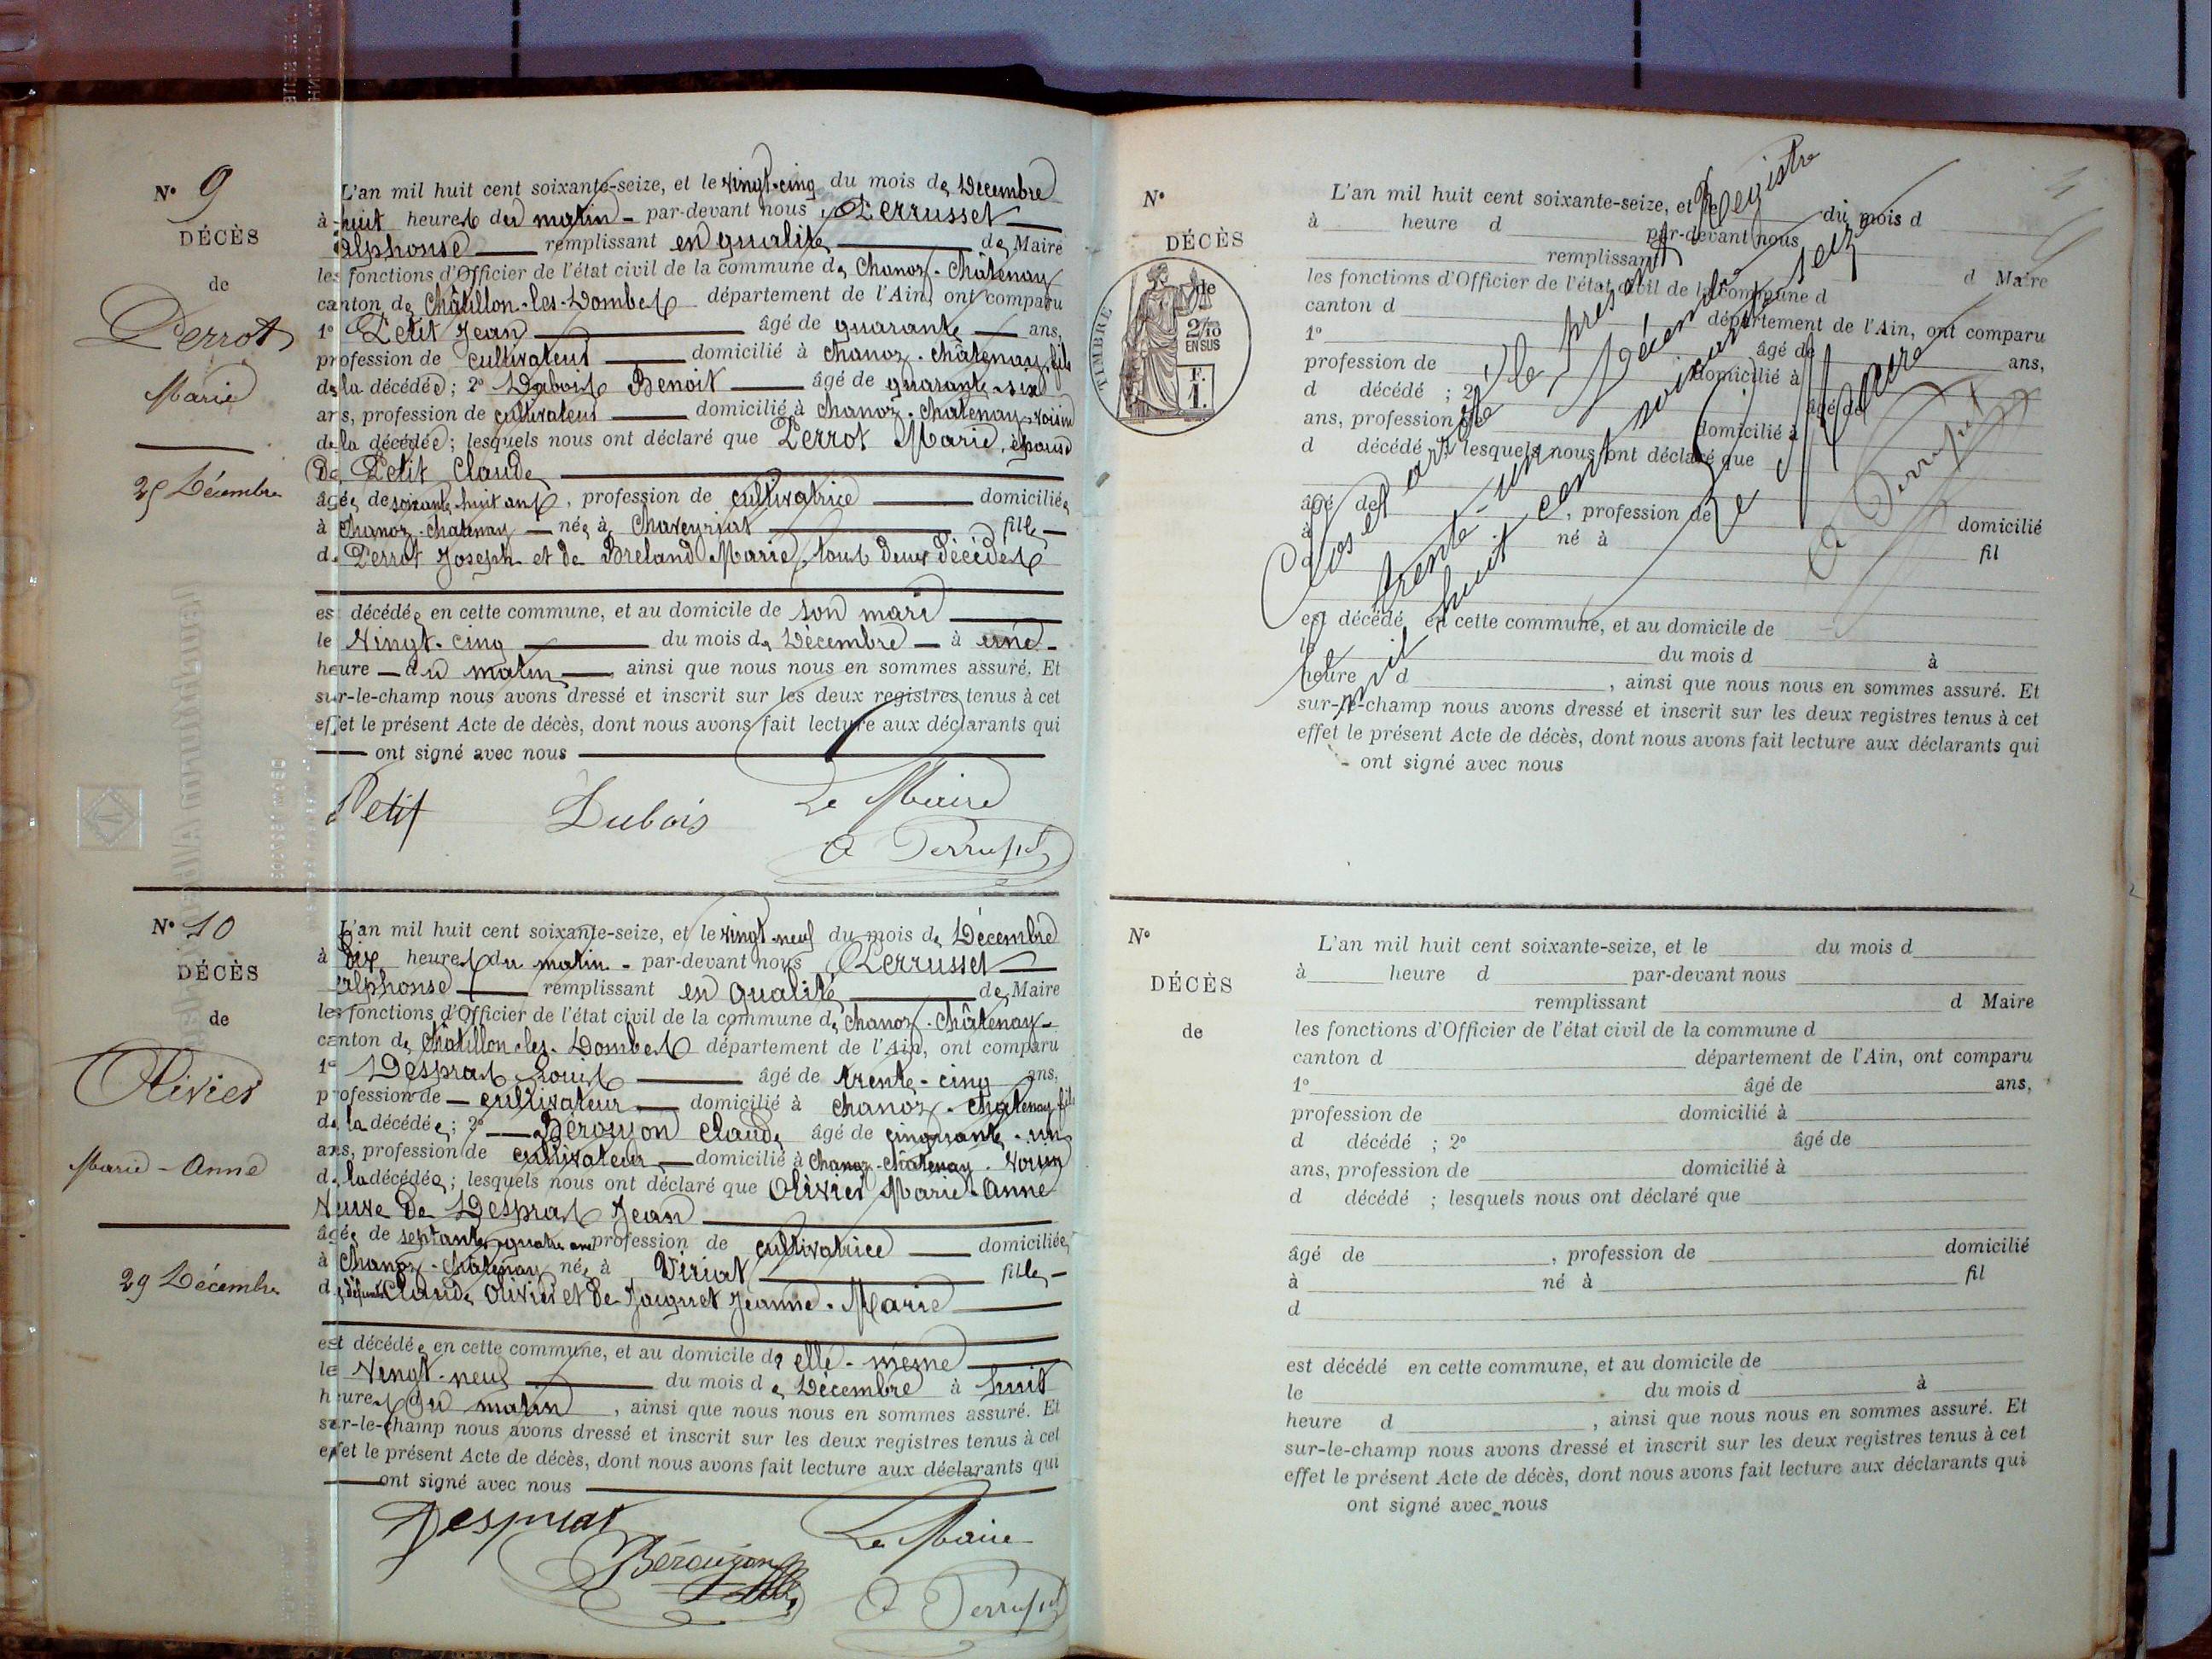 N° 9
DÉCÈS
de
Perrot
Marie
25 Décembre
L'an mil huit cent soixante-seize, et le vingt-cinq du mois de Décembre
à huit heures du matin par-devant nous Perrusset
Alphonse remplissant en qualité de Maire
les fonctions d'Officier de l'état civil de la commune de Chanoz-Châtenay
canton de Châtillon-les-Dombes département de l'Ain, ont comparu
1° Petit Jean âgé de quarante ans,
profession de cultivateur domicilié à Chanoz-Châtenay, fils
de la décédée; 2° Dubois Benoit âgé de quarante-six
ans, profession de cultivateur domicilié à Chanoz-Chatenay voisin
de la décédée; lesquels nous ont déclaré que Perrot Marie, épouse
De Petit Claude
âgée de soixante huit ans, profession de cultivatrice domiciliée
à Chanoz-Chatenay née à Chaveyriat fille
de Perrot Joseph et de Breland Marie, tous deux décédés
est décédée en cette commune, et au domicile de son mari
le Vingt-cinq du mois de Décembre à une
heure du matin, ainsi que nous nous en sommes assuré. Et
sur-le-champ nous avons dressé et inscrit sur les deux registres tenus à cet
effet le présent Acte de décès, dont nous avons fait lecture aux déclarants qui
ont signé avec nous
Petit Dubois Le Maire
A Perrusset
N° 10
DÉCÈS
de
Olivier
Marie-Anne
29 Décembre
L'an mil huit cent soixante-seize, et le vingt-neuf du mois de Décembre
à dix heures du matin par-devant nous Perrusset
Alphonse remplissant en qualité de Maire
les fonctions d'Officier de l'état civil de la commune de Chanoz-Châtenay
canton de Châtillon-les-Dombes département de l'Ain, ont comparu
1° Despras Louis âgé de trente-cinq ans,
profession de cultivateur domicilié à Chanoz-Chatenay fils
de la décédée; 2° Béroujon Claude âgé de cinquante-un
ans, profession de cultivateur domicilié à Chanoz-Châtenay voisin
de la décédée; lesquels nous ont déclaré que Olivier Marie-Anne
Veuve De Despras Jean
âgée de septante quatre ans profession de cultivatrice domiciliée
à Chanoz-Châtenay née à Viriat fille
de défunts Claude Olivier et de Jeanne-Marie
est décédée en cette commune, et au domicile de elle-même
le Vingt-neuf du mois de Décembre à huit
heures du matin, ainsi que nous nous en sommes assuré. Et
sur-le-champ nous avons dressé et inscrit sur les deux registres tenus à cet
effet le présent Acte de décès, dont nous avons fait lecture aux déclarants qui
ont signé avec nous
Despras Le Maire
Béroujon
A Perrusset
N°
DÉCÈS
de
TIMBRE
2/10
EN SUS
F.
1.
L'an mil huit cent soixante-seize, et le du mois d
à heure d par-devant nous
remplissant d Maire
les fonctions d'Officier de l'état civil de la commune d
canton d département de l'Ain, ont comparu
1° âgé de ans,
profession de domicilié à
d décédé ; 2° âgé de
ans, profession de domicilié à
d décédé ; lesquels nous ont déclaré que
âgé de , profession de domicilié
à né à fil
d
est décédé en cette commune, et au domicile de
le du mois d à
heure d , ainsi que nous nous en sommes assuré. Et
sur-le-champ nous avons dressé et inscrit sur les deux registres tenus à cet
effet le présent Acte de décès, dont nous avons fait lecture aux déclarants qui
ont signé avec nous
Clos et arrêté le présent Registre
le trente-un Décembre
mil huit cent soixante-seize
Le Maire
A Perrusset
N°
DÉCÈS
de
L'an mil huit cent soixante-seize, et le du mois d
à heure d par-devant nous
remplissant d Maire
les fonctions d'Officier de l'état civil de la commune d
canton d département de l'Ain, ont comparu
1° âgé de ans,
profession de domicilié à
d décédé ; 2° âgé de
ans, profession de domicilié à
d décédé ; lesquels nous ont déclaré que
âgé de , profession de domicilié
à né à fil
d
est décédé en cette commune, et au domicile de
le du mois d à
heure d , ainsi que nous nous en sommes assuré. Et
sur-le-champ nous avons dressé et inscrit sur les deux registres tenus à cet
effet le présent Acte de décès, dont nous avons fait lecture aux déclarants qui
ont signé avec nous